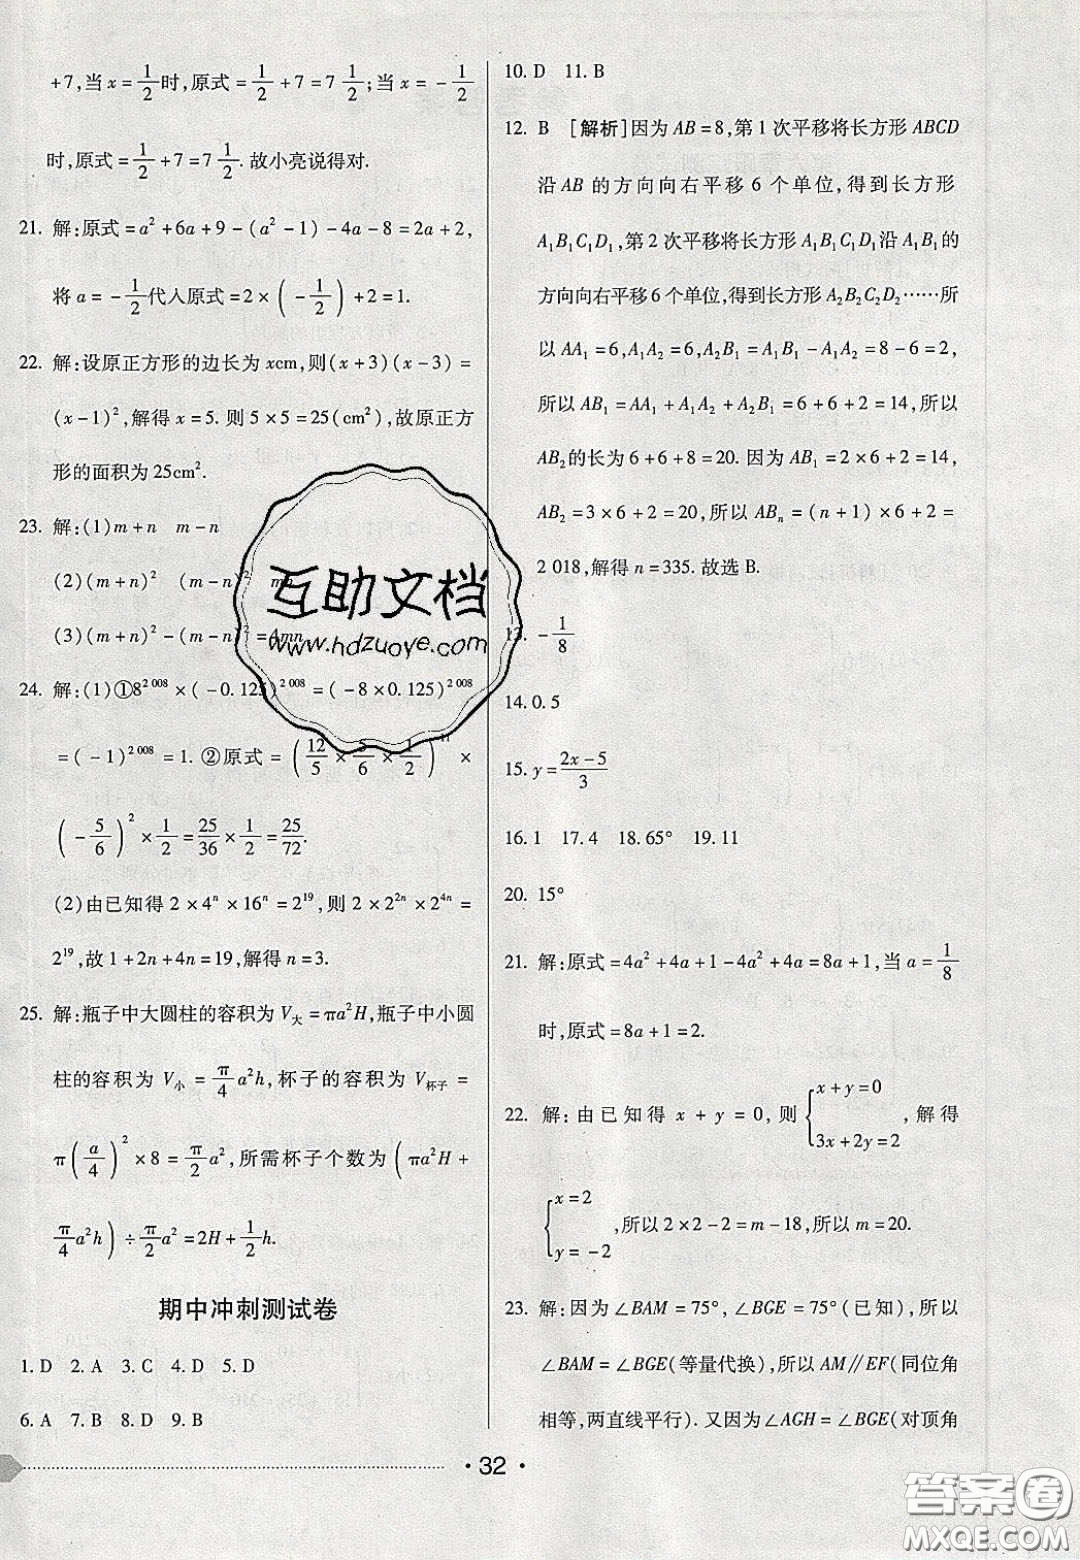 +7,当 x = 1/2 时,原式 = 1/2 + 7 = 7 1/2;当 x = -1/2
时,原式 = 1/2 + 7 = 7 1/2. 故小亮说得对.
21. 解:原式 = a² + 6a + 9 - (a² - 1) - 4a - 8 = 2a + 2,
将 a = -1/2 代入原式 = 2 × (-1/2) + 2 = 1.
22. 解:设原正方形的边长为 xcm,则(x + 3)(x - 3) =
(x - 1)²,解得 x = 5. 则 5 × 5 = 25(cm²),故原正方
形的面积为 25cm².
23. 解:(1)m + n  m - n
(2)(m + n)²  (m - n)²  mn
(3)(m + n)² - (m - n)² = 4mn
24. 解:(1)①8^2 008 × (-0.125)^2 008 = (-8 × 0.125)^2 008
= (-1)^2 008 = 1. ②原式 = (12/5 × 5/6 × 1/2)^n ×
(-5/6)² × 1/2 = 25/36 × 1/2 = 25/72.
(2)由已知得 2 × 4ⁿ × 16ⁿ = 2¹⁹,则 2 × 2²ⁿ × 2⁴ⁿ =
2¹⁹,故 1 + 2n + 4n = 19,解得 n = 3.
25. 解:瓶子中大圆柱的容积为 V大 = πa²H,瓶子中小圆
柱的容积为 V小 = π/4 a²h,杯子的容积为 V杯子 =
π(a/4)² × 8 = π/2 a²,所需杯子个数为 (πa²H +
π/4 a²h) ÷ π/2 a² = 2H + 1/2 h.
期中冲刺测试卷
1. D  2. A  3. C  4. D  5. D
6. A  7. B  8. D  9. B
10. D  11. B
12. B  [解析]因为 AB = 8,第 1 次平移将长方形 ABCD
沿 AB 的方向向右平移 6 个单位,得到长方形
A₁B₁C₁D₁,第 2 次平移将长方形 A₁B₁C₁D₁沿 A₁B₁的
方向向右平移 6 个单位,得到长方形 A₂B₂C₂D₂……所
以 AA₁ = 6,A₁A₂ = 6,A₂B₁ = A₁B₁ - A₁A₂ = 8 - 6 = 2,
所以 AB₁ = AA₁ + A₁A₂ + A₂B₁ = 6 + 6 + 2 = 14,所以
AB₂的长为 6 + 6 + 8 = 20. 因为 AB₁ = 2 × 6 + 2 = 14,
AB₂ = 3 × 6 + 2 = 20,所以 ABₙ = (n + 1) × 6 + 2 =
2 018,解得 n = 335. 故选 B.
13. -1/8
14. 0.5
15. y = (2x - 5)/3
16. 1  17. 4  18. 65°  19. 11
20. 15°
21. 解:原式 = 4a² + 4a + 1 - 4a² + 4a = 8a + 1,当 a = 1/8
时,原式 = 8a + 1 = 2.
22. 解:由已知得 x + y = 0,则 {x + y = 0, 3x + 2y = 2},解得
{x = 2, y = -2},所以 2 × 2 - 2 = m - 18,所以 m = 20.
23. 解:因为∠BAM = 75°,∠BGE = 75°(已知),所以
∠BAM = ∠BGE(等量代换),所以 AM∥EF(同位角
相等,两直线平行). 又因为∠AGH = ∠BGE(对顶角
· 32 ·
互助文档
www.hdzuoye.com
答案圈
MXQE.COM